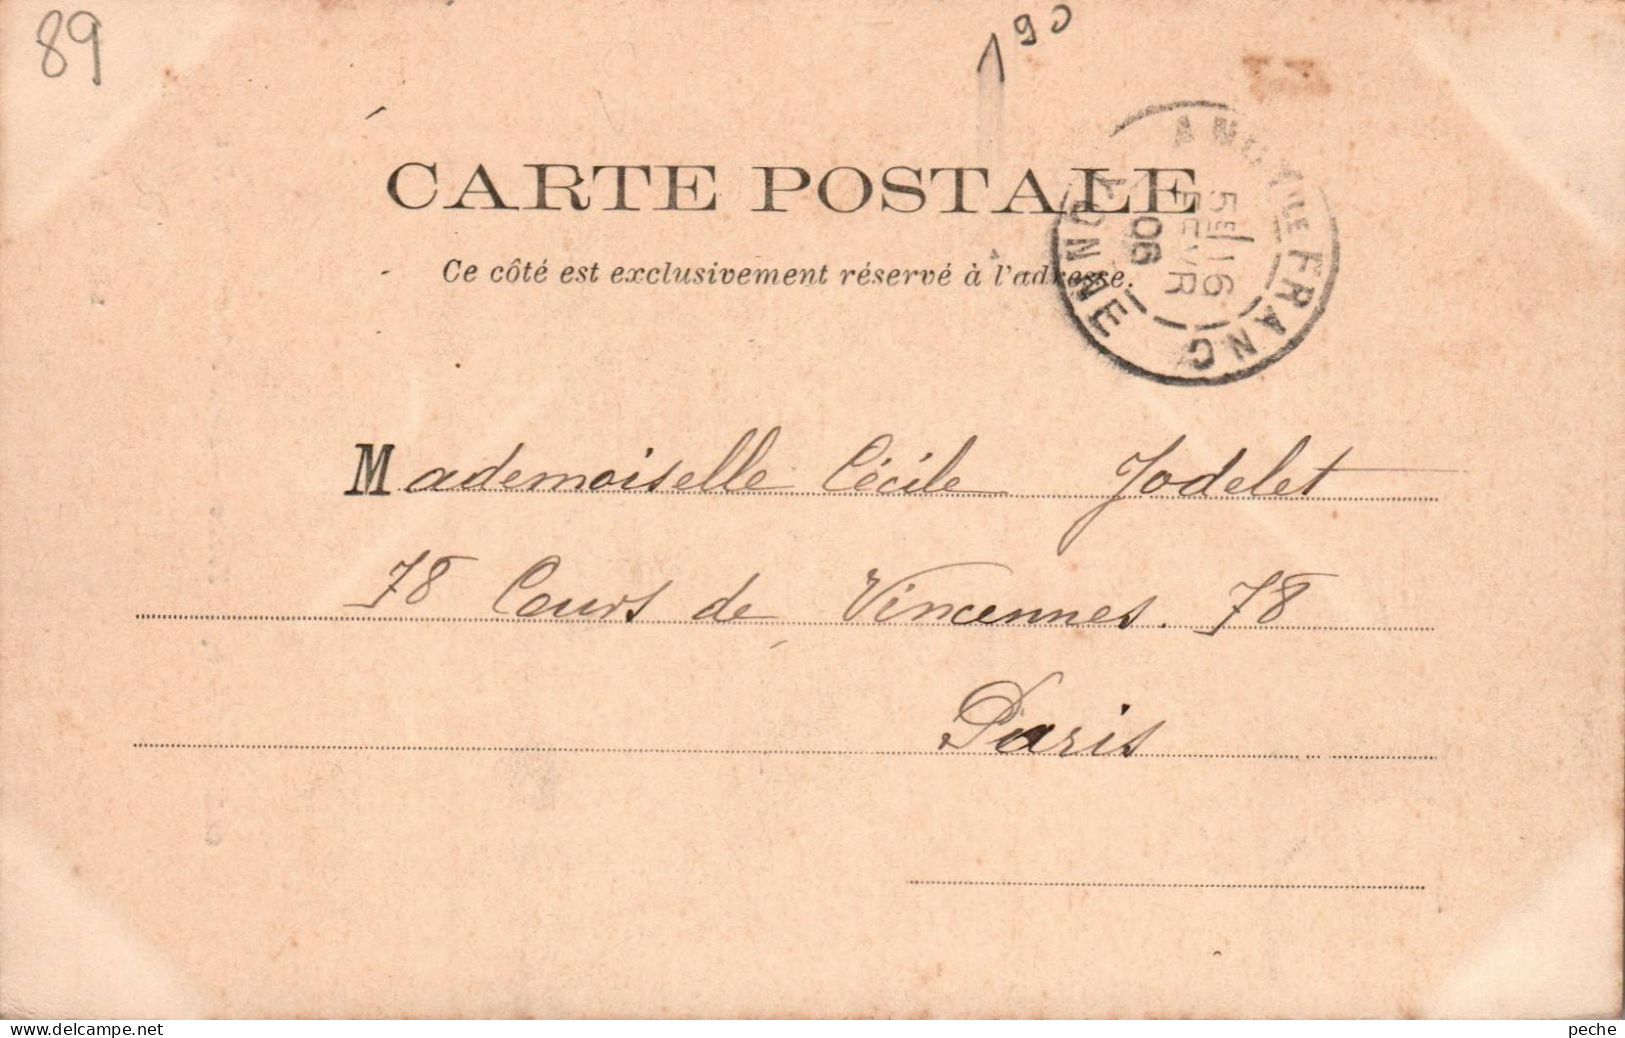 89
190
CARTE POSTALE
Ce côté est exclusivement réservé à l'adresse.
FRANC
YONNE
5E 16
FEVR
06
Mademoiselle Cécile Jodelet
78 Cours de Vincennes. 78
Paris
www.delcampe.net
peche